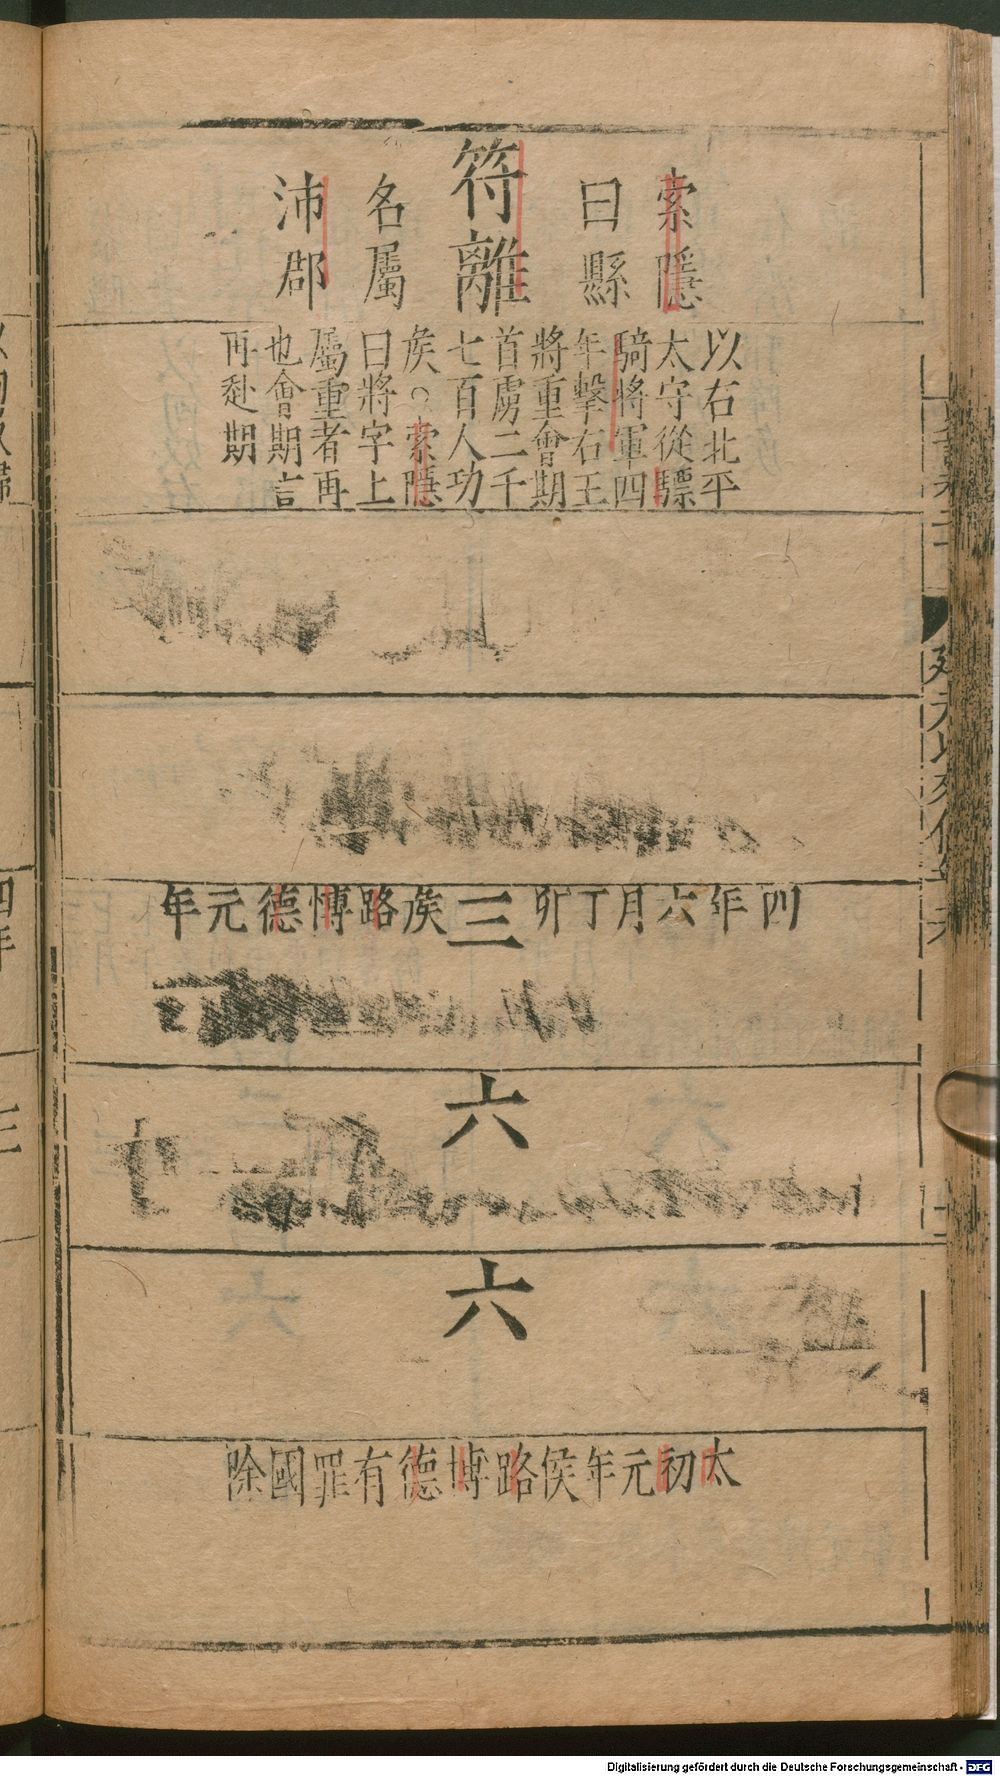 索隱
曰縣
符離
名屬
沛郡
以右北平
太守從驃
騎將軍四
年擊右王
將重會期
首虜二千
七百人功
矦○索隱
曰將字上
屬重者再
也會期言
再赴期
四年六月丁卯
三
矦路博德元年
六
六
太初元年侯路博德有罪國除
建元以來侯年表
Digitalisierung gefördert durch die Deutsche Forschungsgemeinschaft - DFG